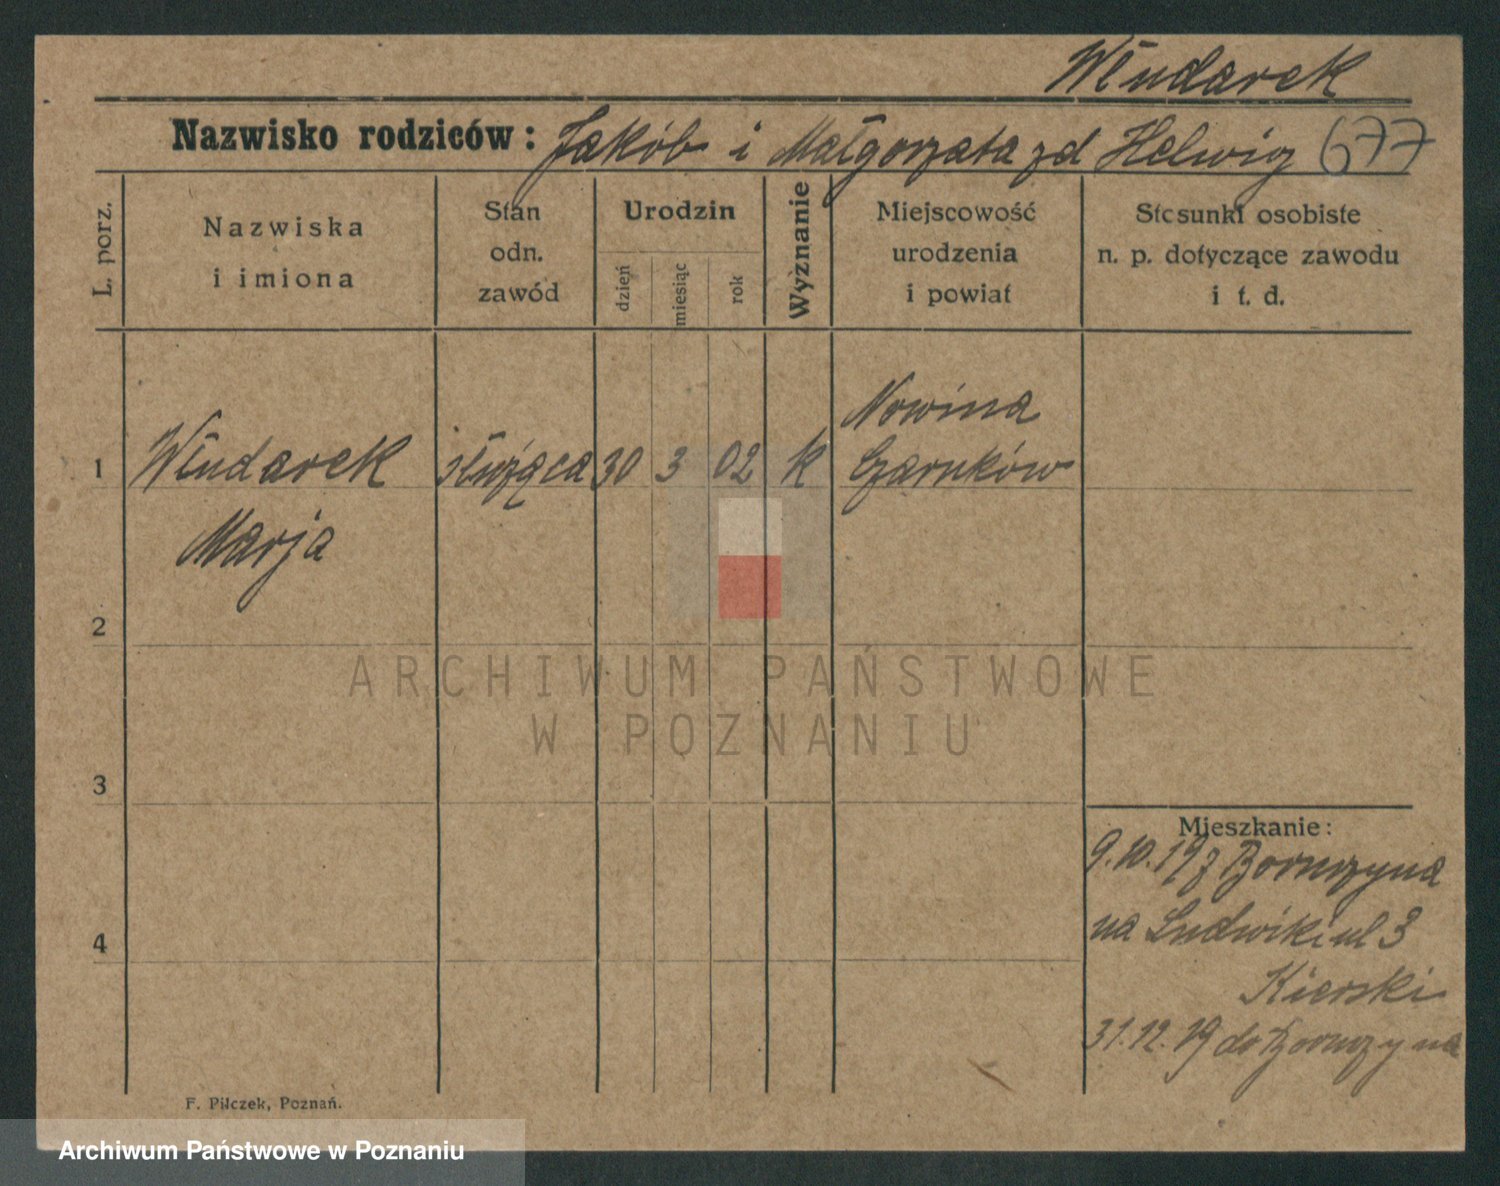 Włudarek
Nazwisko rodziców: Jakób i Małgorzata zd Helwig 677
L. porz.
Nazwiska
i imiona
Stan
odn.
zawód
Urodzin
dzień
miesiąc
rok
Wyznanie
Miejscowość
urodzenia
i powiat
Stosunki osobiste
n. p. dotyczące zawodu
i t. d.
1 Włudarek służąca 30 3 02 k Nowina
Czarnków
Marja
2
3
4
Mieszkanie:
9.10.19 z
na Ludwiki ul 3
Kierski
31.12.19 do
F. Pilczek, Poznań.
ARCHIWUM PAŃSTWOWE
W POZNANIU
Archiwum Państwowe w Poznaniu